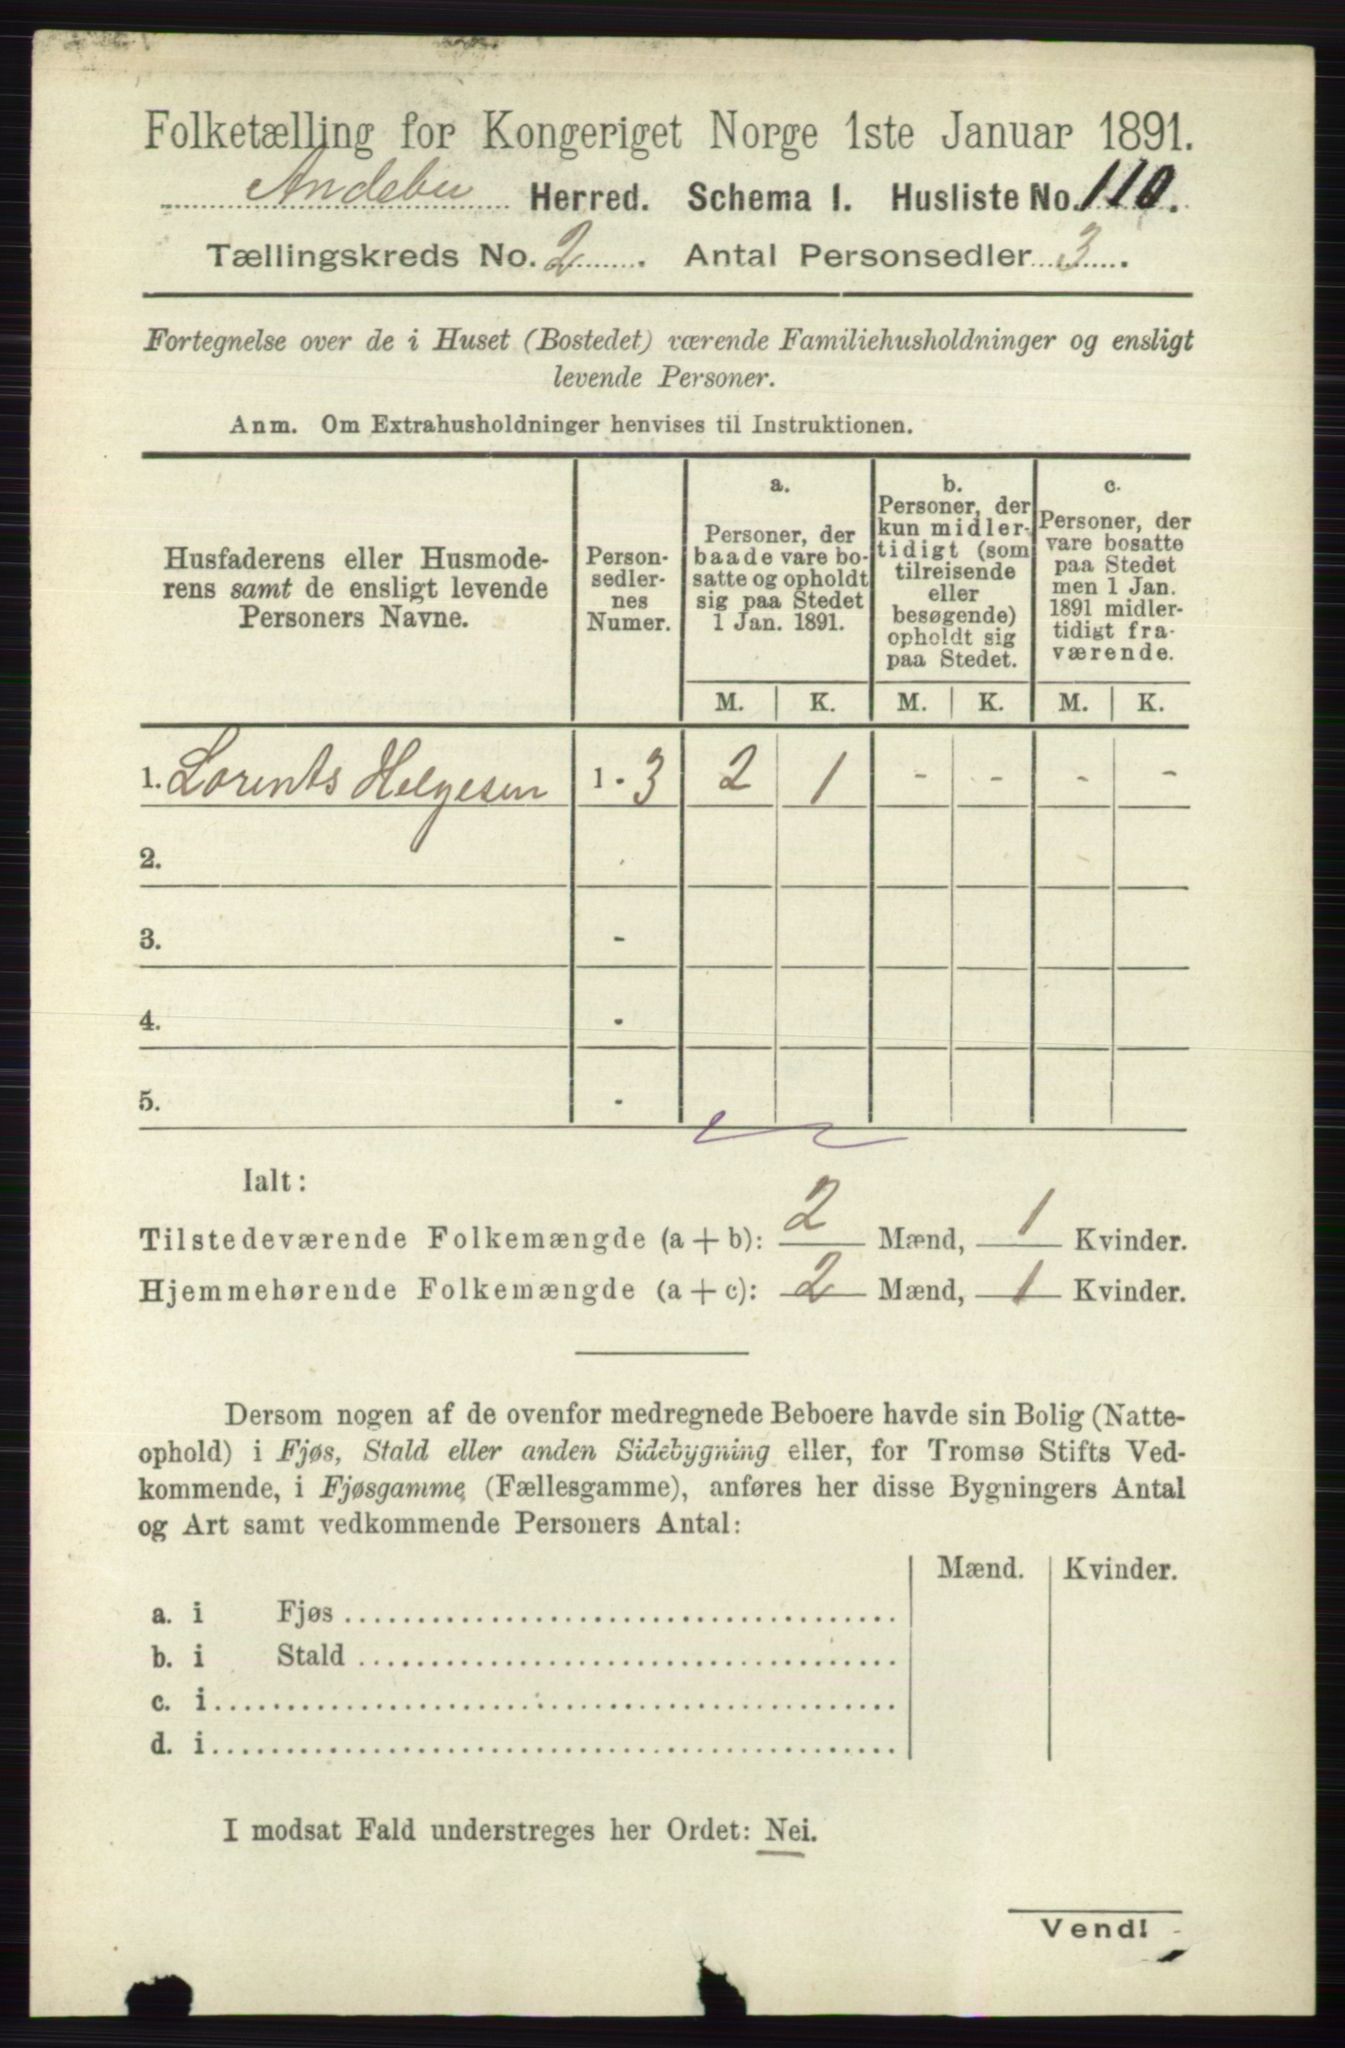 Folketælling for Kongeriget Norge 1ste Januar 1891.
Andebu Herred. Schema 1. Husliste No. 110.
Tællingskreds No. 2. Antal Personsedler 3.
Fortegnelse over de i Huset (Bostedet) værende Familiehusholdninger og ensligt
levende Personer.
Anm. Om Extrahusholdninger henvises til Instruktionen.
Husfaderens eller Husmode-
rens samt de ensligt levende
Personers Navne.
Person-
sedler-
nes
Numer.
a.
Personer, der
baade vare bo-
satte og opholdt
sig paa Stedet
1 Jan. 1891.
b.
Personer, der
kun midler-
tidigt (som
tilreisende
eller
besøgende)
opholdt sig
paa Stedet.
c.
Personer, der
vare bosatte
paa Stedet
men 1 Jan.
1891 midler-
tidigt fra-
værende.
M. K. M. K. M. K.
1. Lorents Helgesen 1 - 3 2 1 - - - -
2. -
3. -
4. -
5. -
Ialt:
Tilstedeværende Folkemængde (a + b): 2 Mænd, 1 Kvinder.
Hjemmehørende Folkemængde (a + c): 2 Mænd, 1 Kvinder.
Dersom nogen af de ovenfor medregnede Beboere havde sin Bolig (Natte-
ophold) i Fjøs, Stald eller anden Sidebygning eller, for Tromsø Stifts Ved-
kommende, i Fjøsgamme (Fællesgamme), anføres her disse Bygningers Antal
og Art samt vedkommende Personers Antal:
Mænd. Kvinder.
a. i Fjøs
b. i Stald
c. i
d. i
I modsat Fald understreges her Ordet: Nei.
Vend!